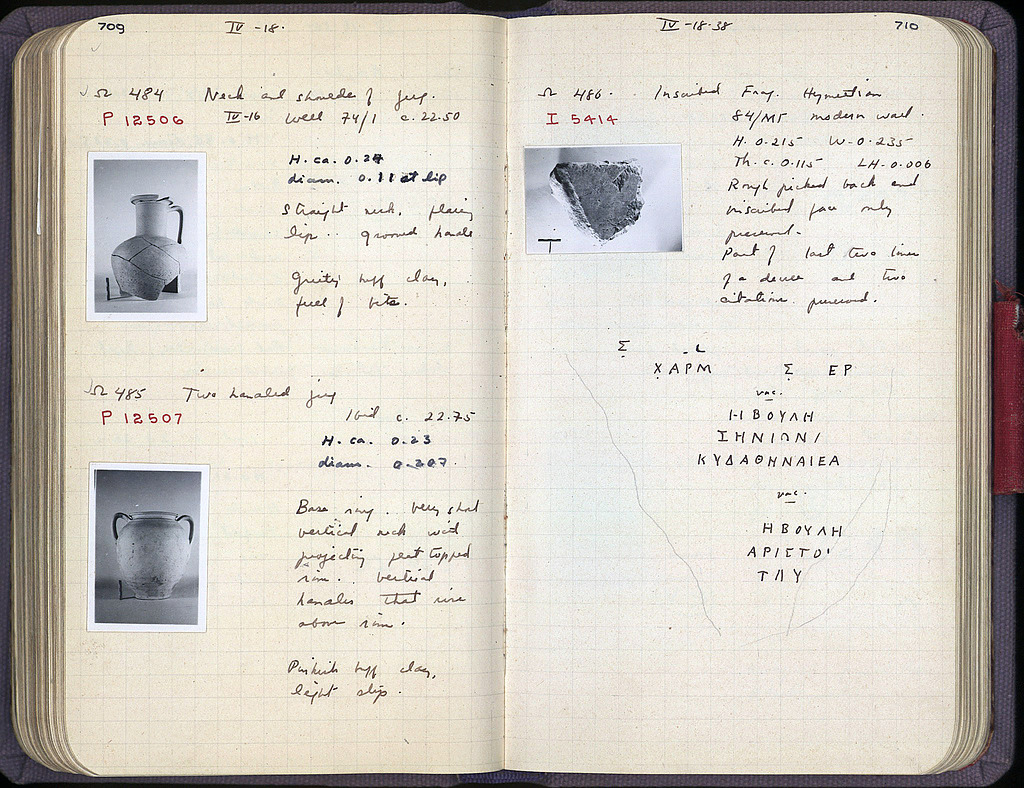 709
IV -18.
Ω 484 Neck and shoulder of jug.
P 12506 IV-16 Well 74/1 c. 22.50
H. ca. 0.27
diam. 0.11 at lip
Straight neck, flaring
lip.. grooved handle
Gritty buff clay,
full of bits.
Ω 485 Two handled jug
P 12507 Ibid c. 22.75
H. ca. 0.23
diam. 0.207.
Base ring.. very short
vertical neck with
projecting flat topped
rim.. vertical
handles that rise
above rim.
Pinkish buff clay,
light slip.
IV -18-38
710
Ω 486. Inscribed Frag. Hymettian
I 5414 84/ΜΓ modern wall.
H. 0.215 W-0.235
Th. c. 0.115 LH-0.006
Rough picked back and
inscribed face only
preserved.
Part of last two lines
of a decree and two
citations preserved.
Σ
ΧΑΡΜ Σ ΕΡ
vac.
Η ΒΟΥΛΗ
ΞΗΝΙΩΝΙ
ΚΥΔΑΘΗΝΑΙΕΑ
vac.
Η ΒΟΥΛΗ
ΑΡΙΣΤΟ